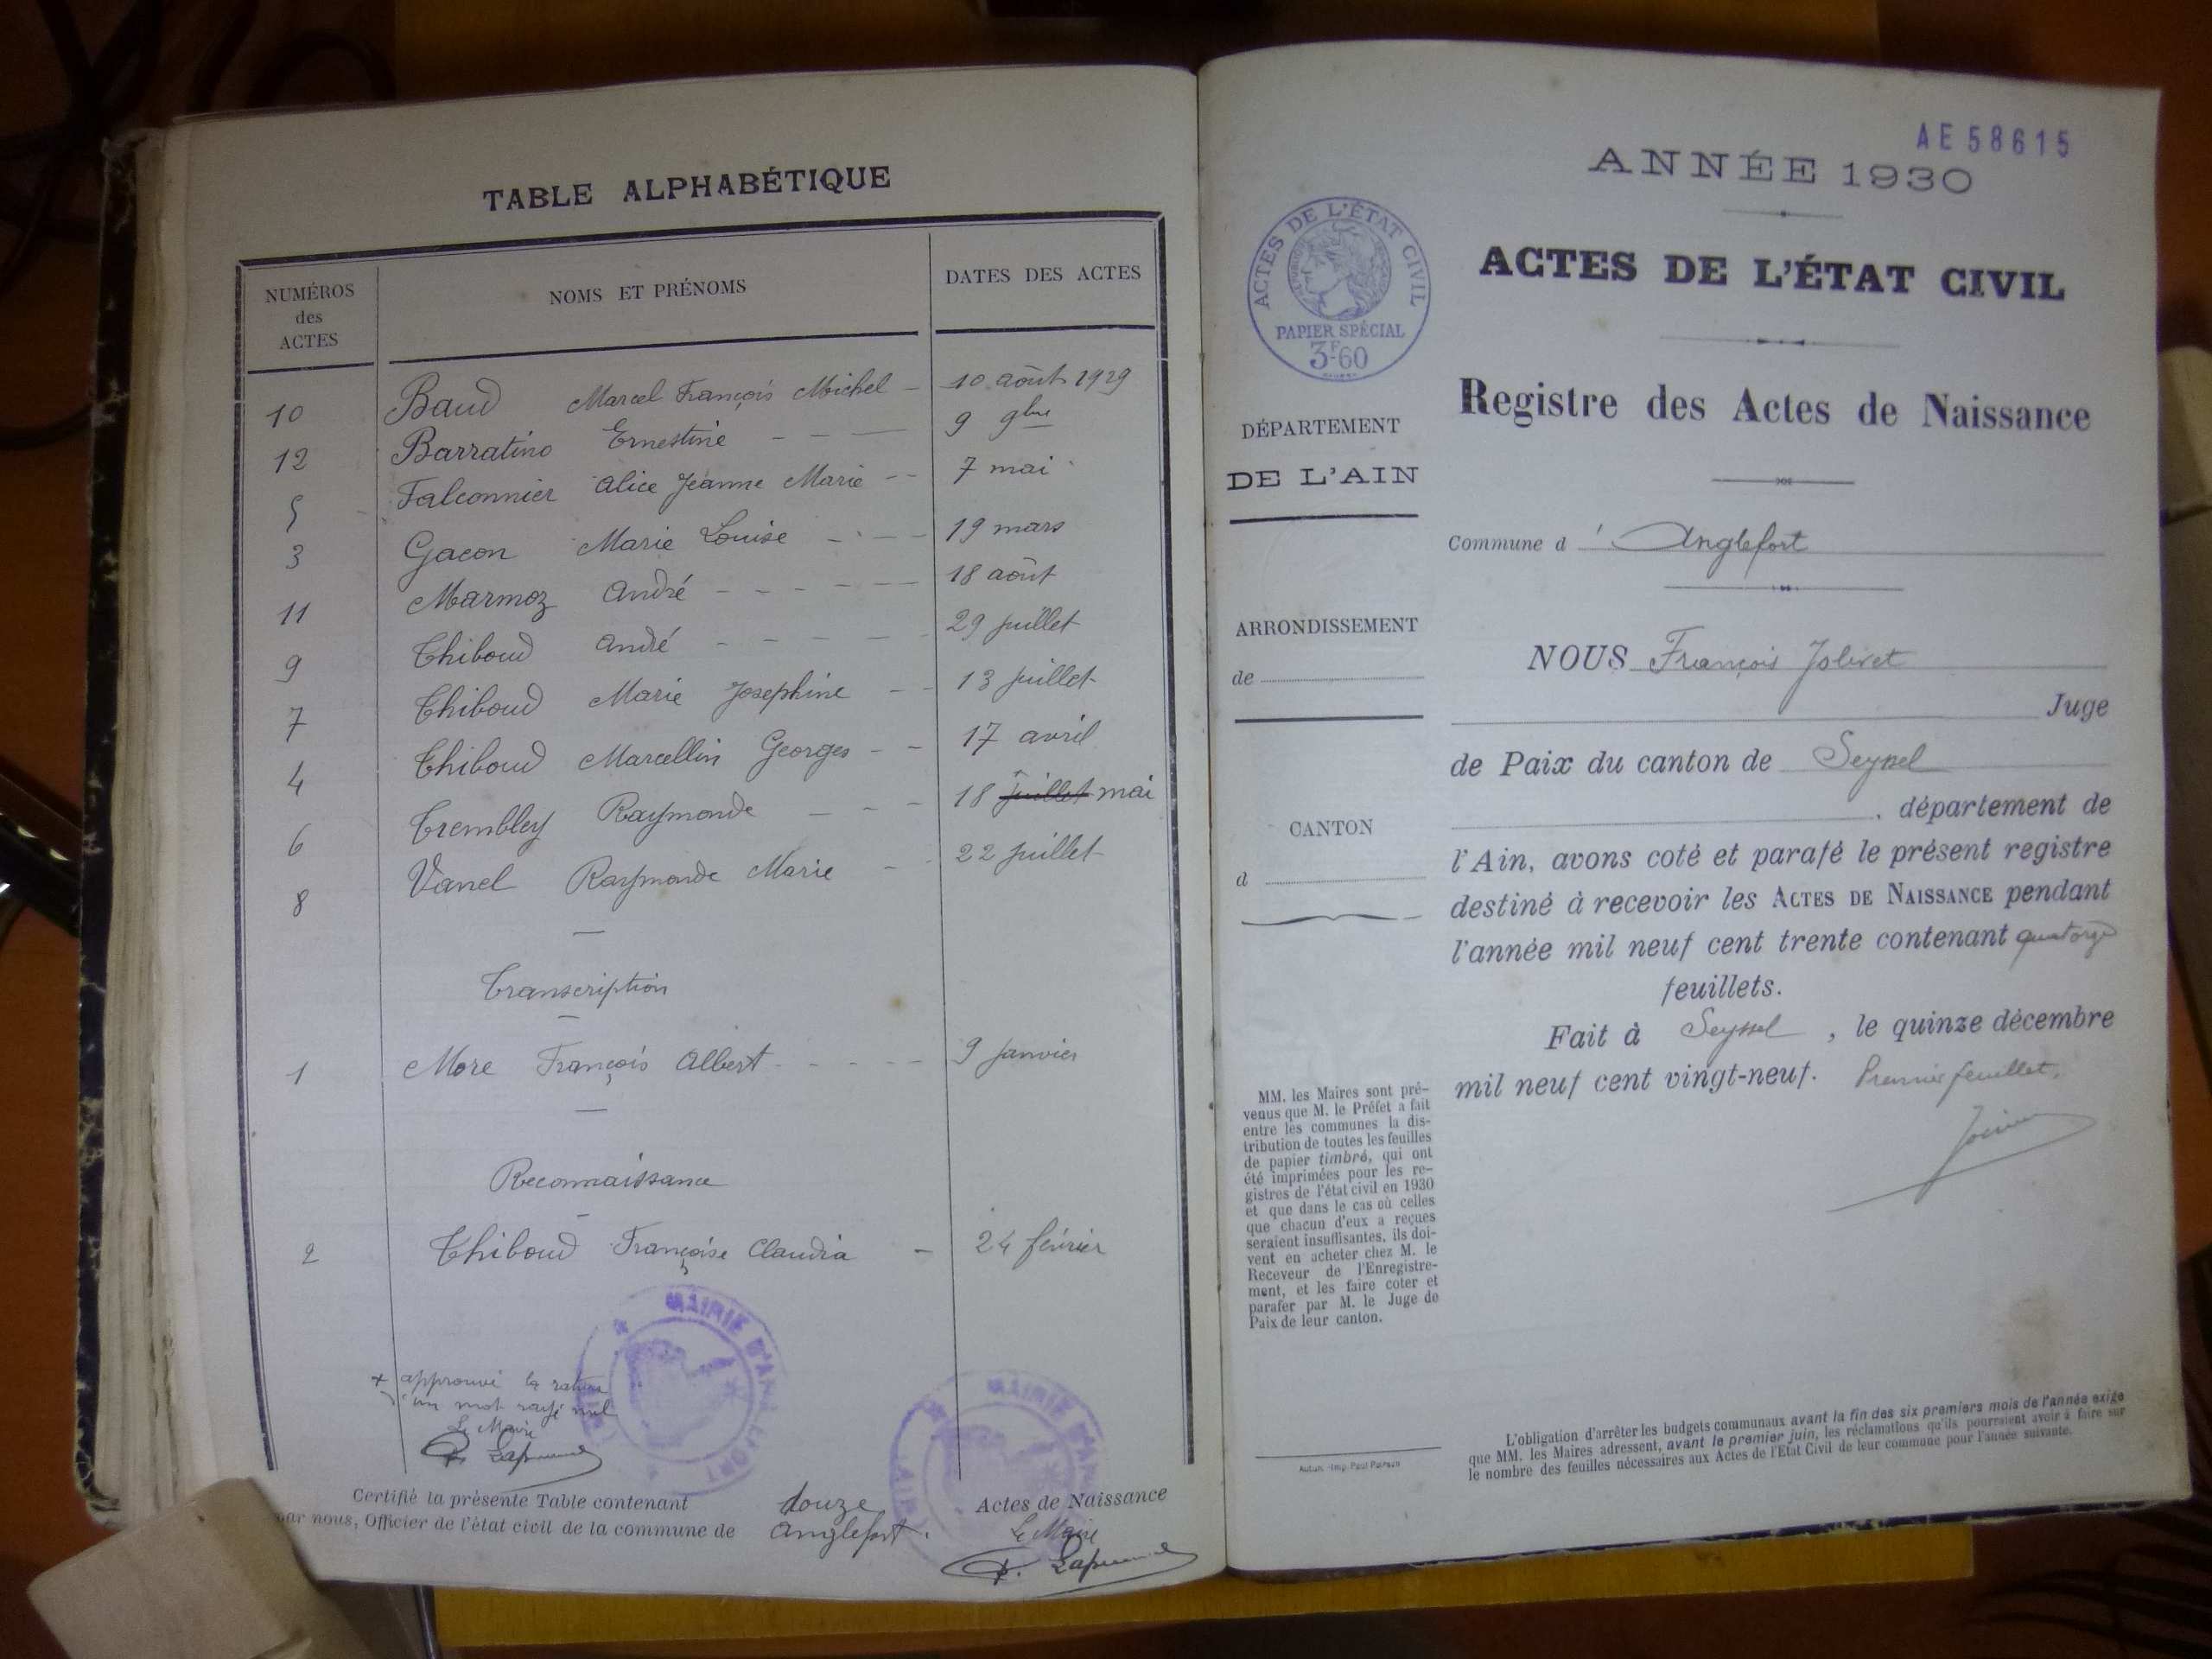 TABLE ALPHABÉTIQUE
NUMÉROS des ACTES NOMS ET PRÉNOMS DATES DES ACTES
10 Baud Marcel François Michel - 10 août 1929
12 Barratino Ernestine - - - 9 9bre
5 Falconnier Alice Jeanne Marie - - 7 mai
3 Gacon Marie Louise - - - 19 mars
11 Marmoz André - - - - - 18 août
9 Thiboud André - - - - - 29 juillet
7 Thiboud Marie Josephine - - 13 juillet
4 Thiboud Marcellin Georges - - 17 avril
6 Trembley Raymonde - - 18 juillet mai
8 Vanel Raymonde Marie - - 22 juillet
Transcription
1 More François Albert - - - - 9 janvier
Reconnaissance
2 Thiboud Françoise Claudia - 24 février
+ approuvé la rature
d'un mot rayé nul
Le Maire
MAIRIE D'ANGLEFORT
(AIN)
MAIRIE D'AN
(AIN)
Certifié la présente Table contenant douze Actes de Naissance
par nous, Officier de l'état civil de la commune de Anglefort.
Le Maire
AE 58615
ANNÉE 1930
ACTES DE L'ÉTAT CIVIL
PAPIER SPÉCIAL
3F60
ACTES DE L'ÉTAT CIVIL
Registre des Actes de Naissance
DÉPARTEMENT
DE L'AIN
Commune d' Anglefort
ARRONDISSEMENT
de
CANTON
d
NOUS François Jolivet
Juge
de Paix du canton de Seyssel
, département de
l'Ain, avons coté et parafé le présent registre
destiné à recevoir les ACTES DE NAISSANCE pendant
l'année mil neuf cent trente contenant quatorze
feuillets.
Fait à Seyssel, le quinze décembre
mil neuf cent vingt-neuf. Premier feuillet.
MM. les Maires sont pré-
venus que M. le Préfet a fait
entre les communes la dis-
tribution de toutes les feuilles
de papier timbré, qui ont
été imprimées pour les re-
gistres de l'état civil en 1930
et que dans le cas où celles
que chacun d'eux a reçues
seraient insuffisantes, ils doi-
vent en acheter chez M. le
Receveur de l'Enregistre-
ment, et les faire coter et
parafer par M. le Juge de
Paix de leur canton.
Autun. - Imp. Paul Poirson
L'obligation d'arrêter les budgets communaux avant la fin des six premiers mois de l'année exige
que MM. les Maires adressent, avant le premier juin, les réclamations qu'ils pourraient avoir à faire sur
le nombre des feuilles nécessaires aux Actes de l'Etat Civil de leur commune pour l'année suivante.